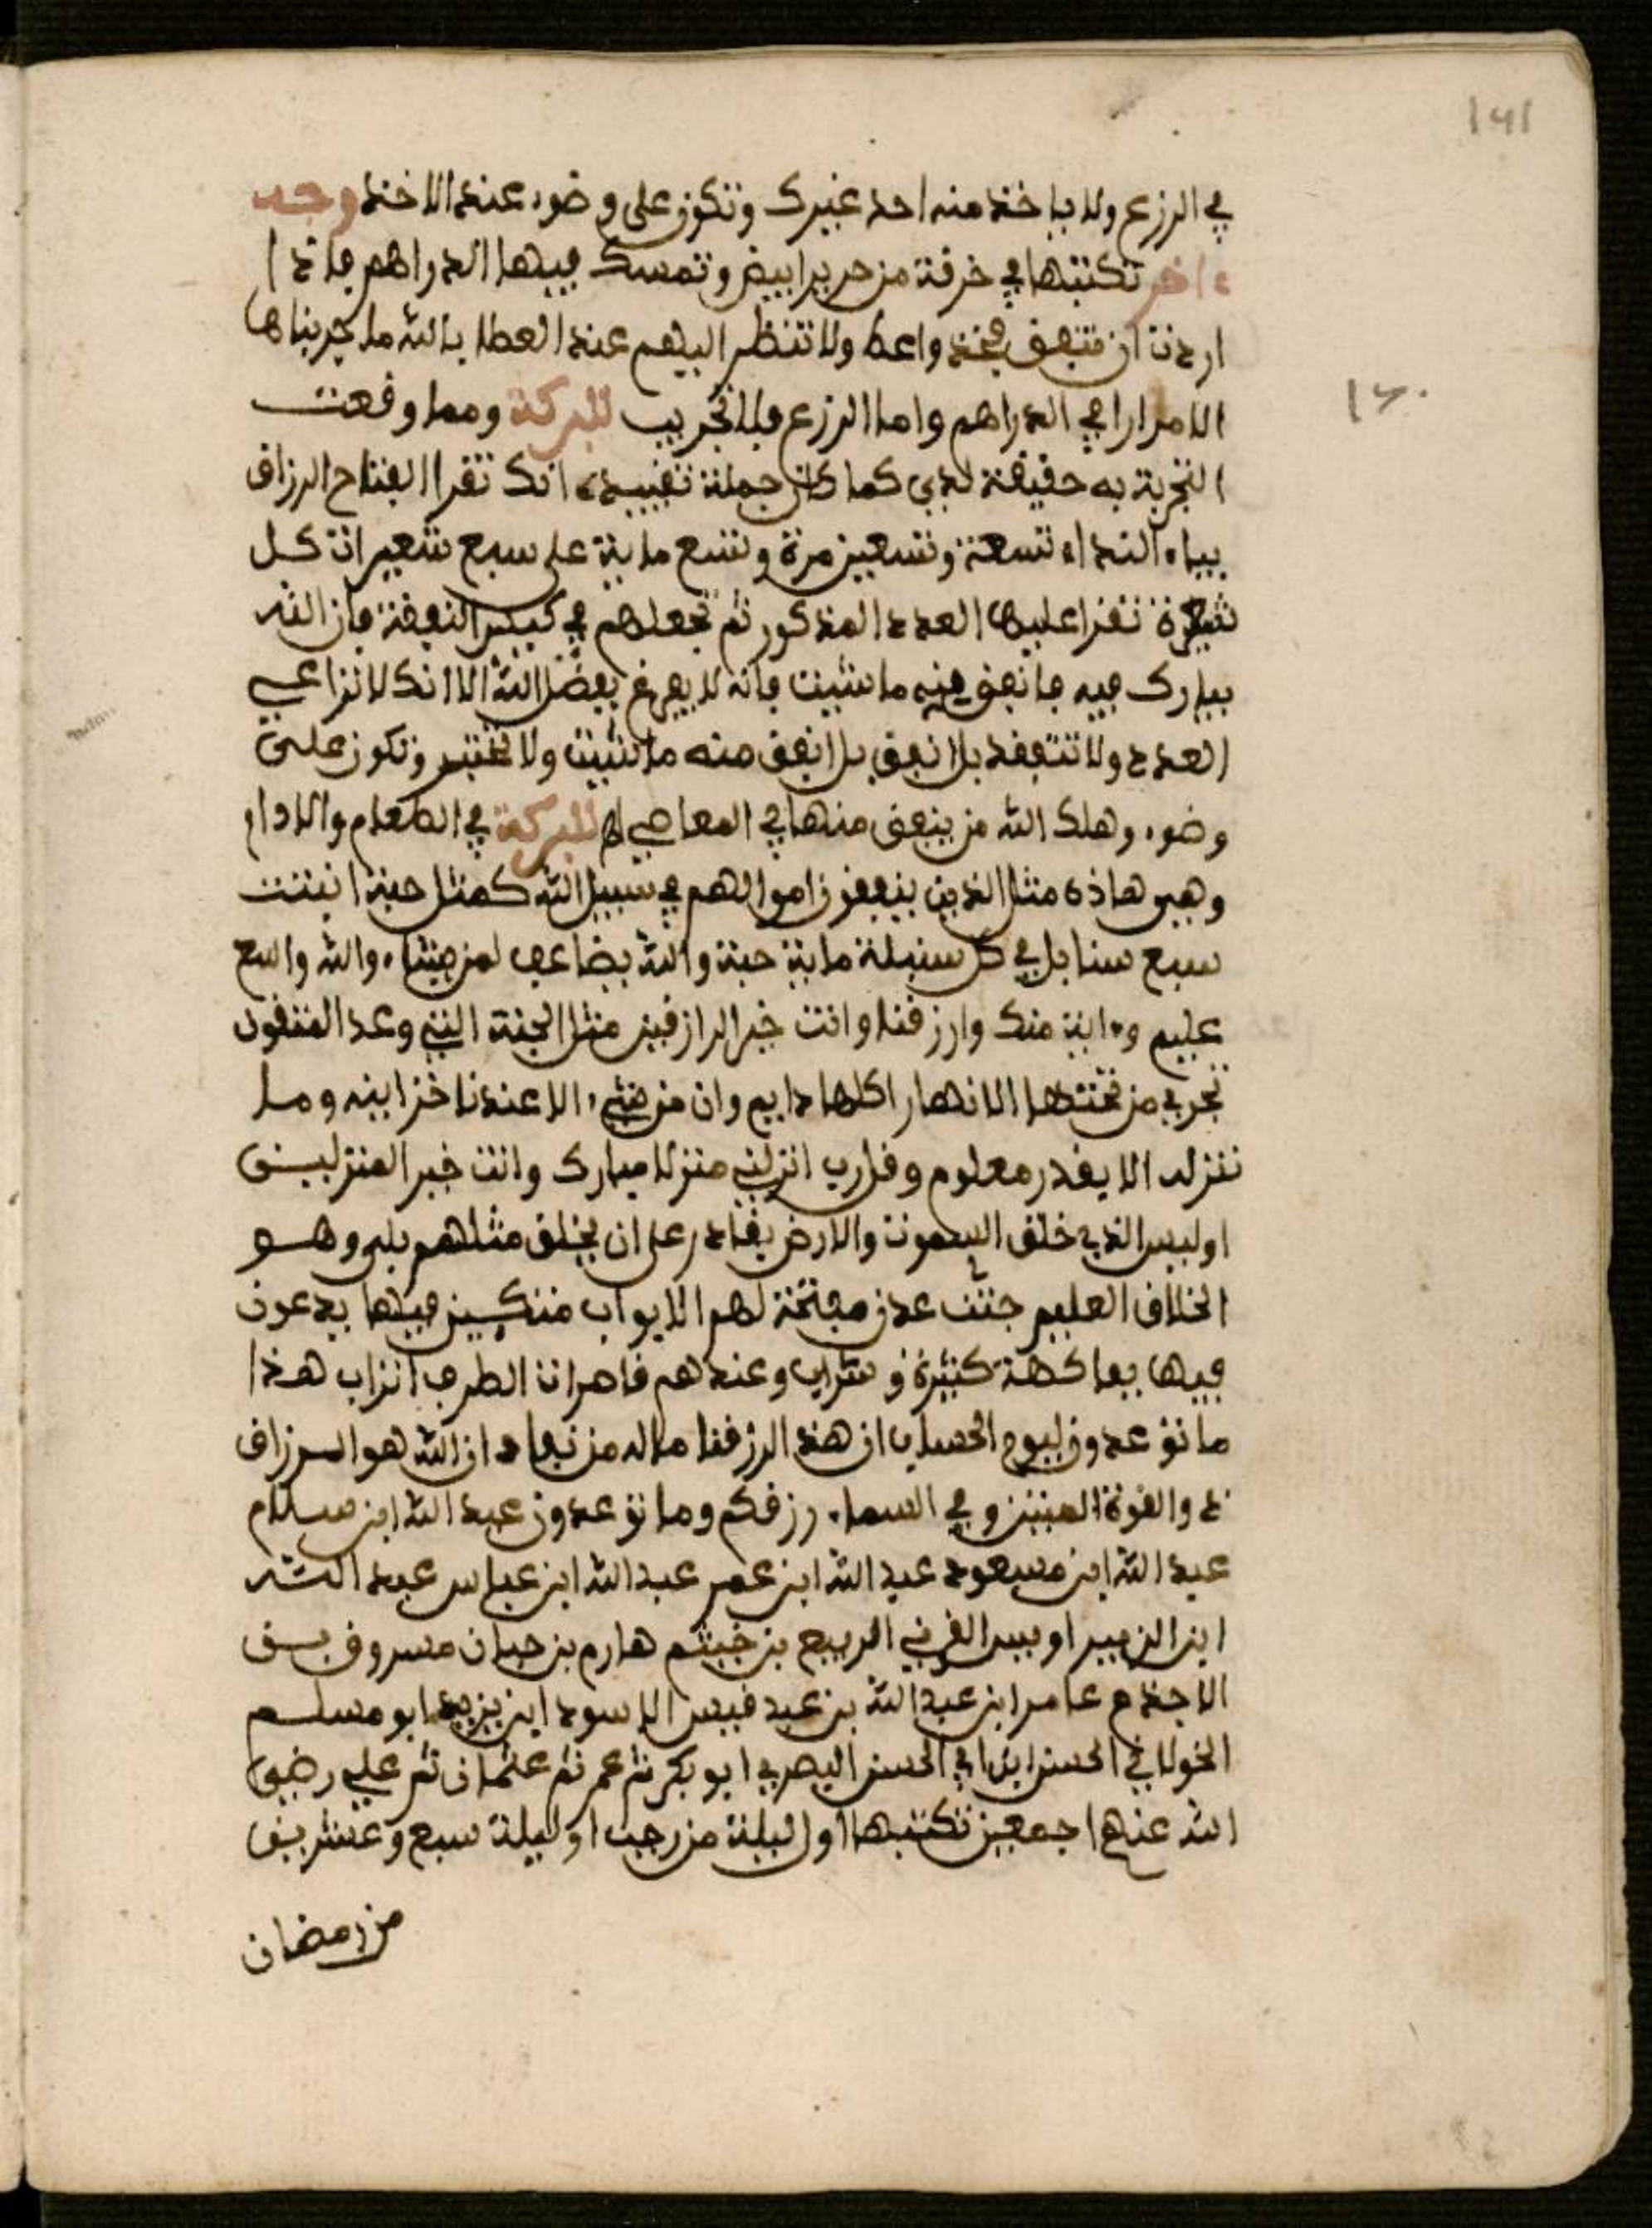 ١٢١
في الزرع ولا ياخذ منه احد غيرك وتكون على وضوء عند الاخذ وجه
ءاخر تكتبها في خرقة من حرير ابيض وتمسك فيها الدراهم فاذا
اردت ان تنفق فخذ واعط ولا تنظر اليهم عند العطا بالله ما جربناها
الا مرارا في الدراهم واما الزرع فبلا تجريب للبركة ومما وقعت
١٢٠
التجربة به حقيقة لدي كما كان جملة تقييده انك تقرا الفتاح الرزاق
بياء النداء تسعة وتسعين مرة وتسع ماية على سبع شعيرات كل
شعيرة تقرا عليها العدد المذكور ثم تجعلهم في كيس النفقة فان الله
يبارك فيه فانفق منه ما شيت فانه لا يفرغ بفضل الله الا انك لا تراعي
العدد ولا تتفقد بلا نفق بل انفق منه ما شيت ولا تختبر وتكون على
وضوء وهلك الله من ينفق منها في المعاصي اه للبركة في الطعام والادام
وهي هاذه مثل الذين ينفقون اموالهم في سبيل الله كمثل حبة انبتت
سبع سنابل في كل سنبلة ماية حبة والله يضاعف لمن يشاء والله واسع
عليم وءاية منك وارزقنا وانت خير الرازقين مثل الجنة التي وعد المتقون
تجري من تحتها الانهار اكلها دايم وان من شيء الا عندنا خزاينه وما
ننزله الا بقدر معلوم وقل رب انزلني منزلا مبارك وانت خير المنزلين
اوليس الذي خلق السموت والارض بقادر على ان يخلق مثلهم بلى وهو
الخلاق العليم جنت عدن مفتحة لهم الابواب متكيين فيها يدعون
فيها بفاكهة كثيرة وشراب وعندهم قاصرات الطرف اتراب هذا
ما توعدون ليوم الحساب ان هذا لرزقنا ماله من نفاد ان الله هو الرزاق
ذو القوة المتين وفي السماء رزقكم وما توعدون عبد الله ابن سلام
عبد الله ابن مسعود عبد الله ابن عمر عبد الله ابن عباس عبد الله
ابن الزبير اويس القرني الربيع بن خيثم هارم بن حيان مسروق بن
الاجذم عامر ابن عبد الله بن عبد قيس الاسود ابن يزيد ابو مسلم
الخولاني الحسن ابن ابي الحسن البصري ابو بكر ثم عمر ثم عثمان ثم علي رضي
الله عنهم اجمعين تكتبها اول ليلة من رجب او ليلة سبع وعشرين
من رمضان